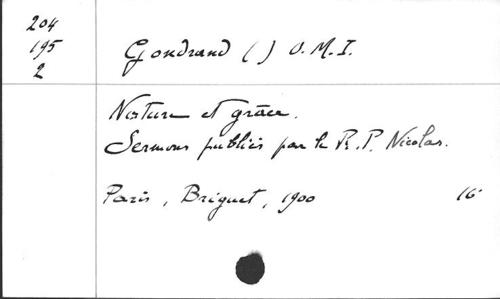 204
195
2
Gondrand ( ) O.M.I.
Nature et grâce.
Sermons publiés par le R.P. Nicolas.
Paris, Briguet, 1900 16°